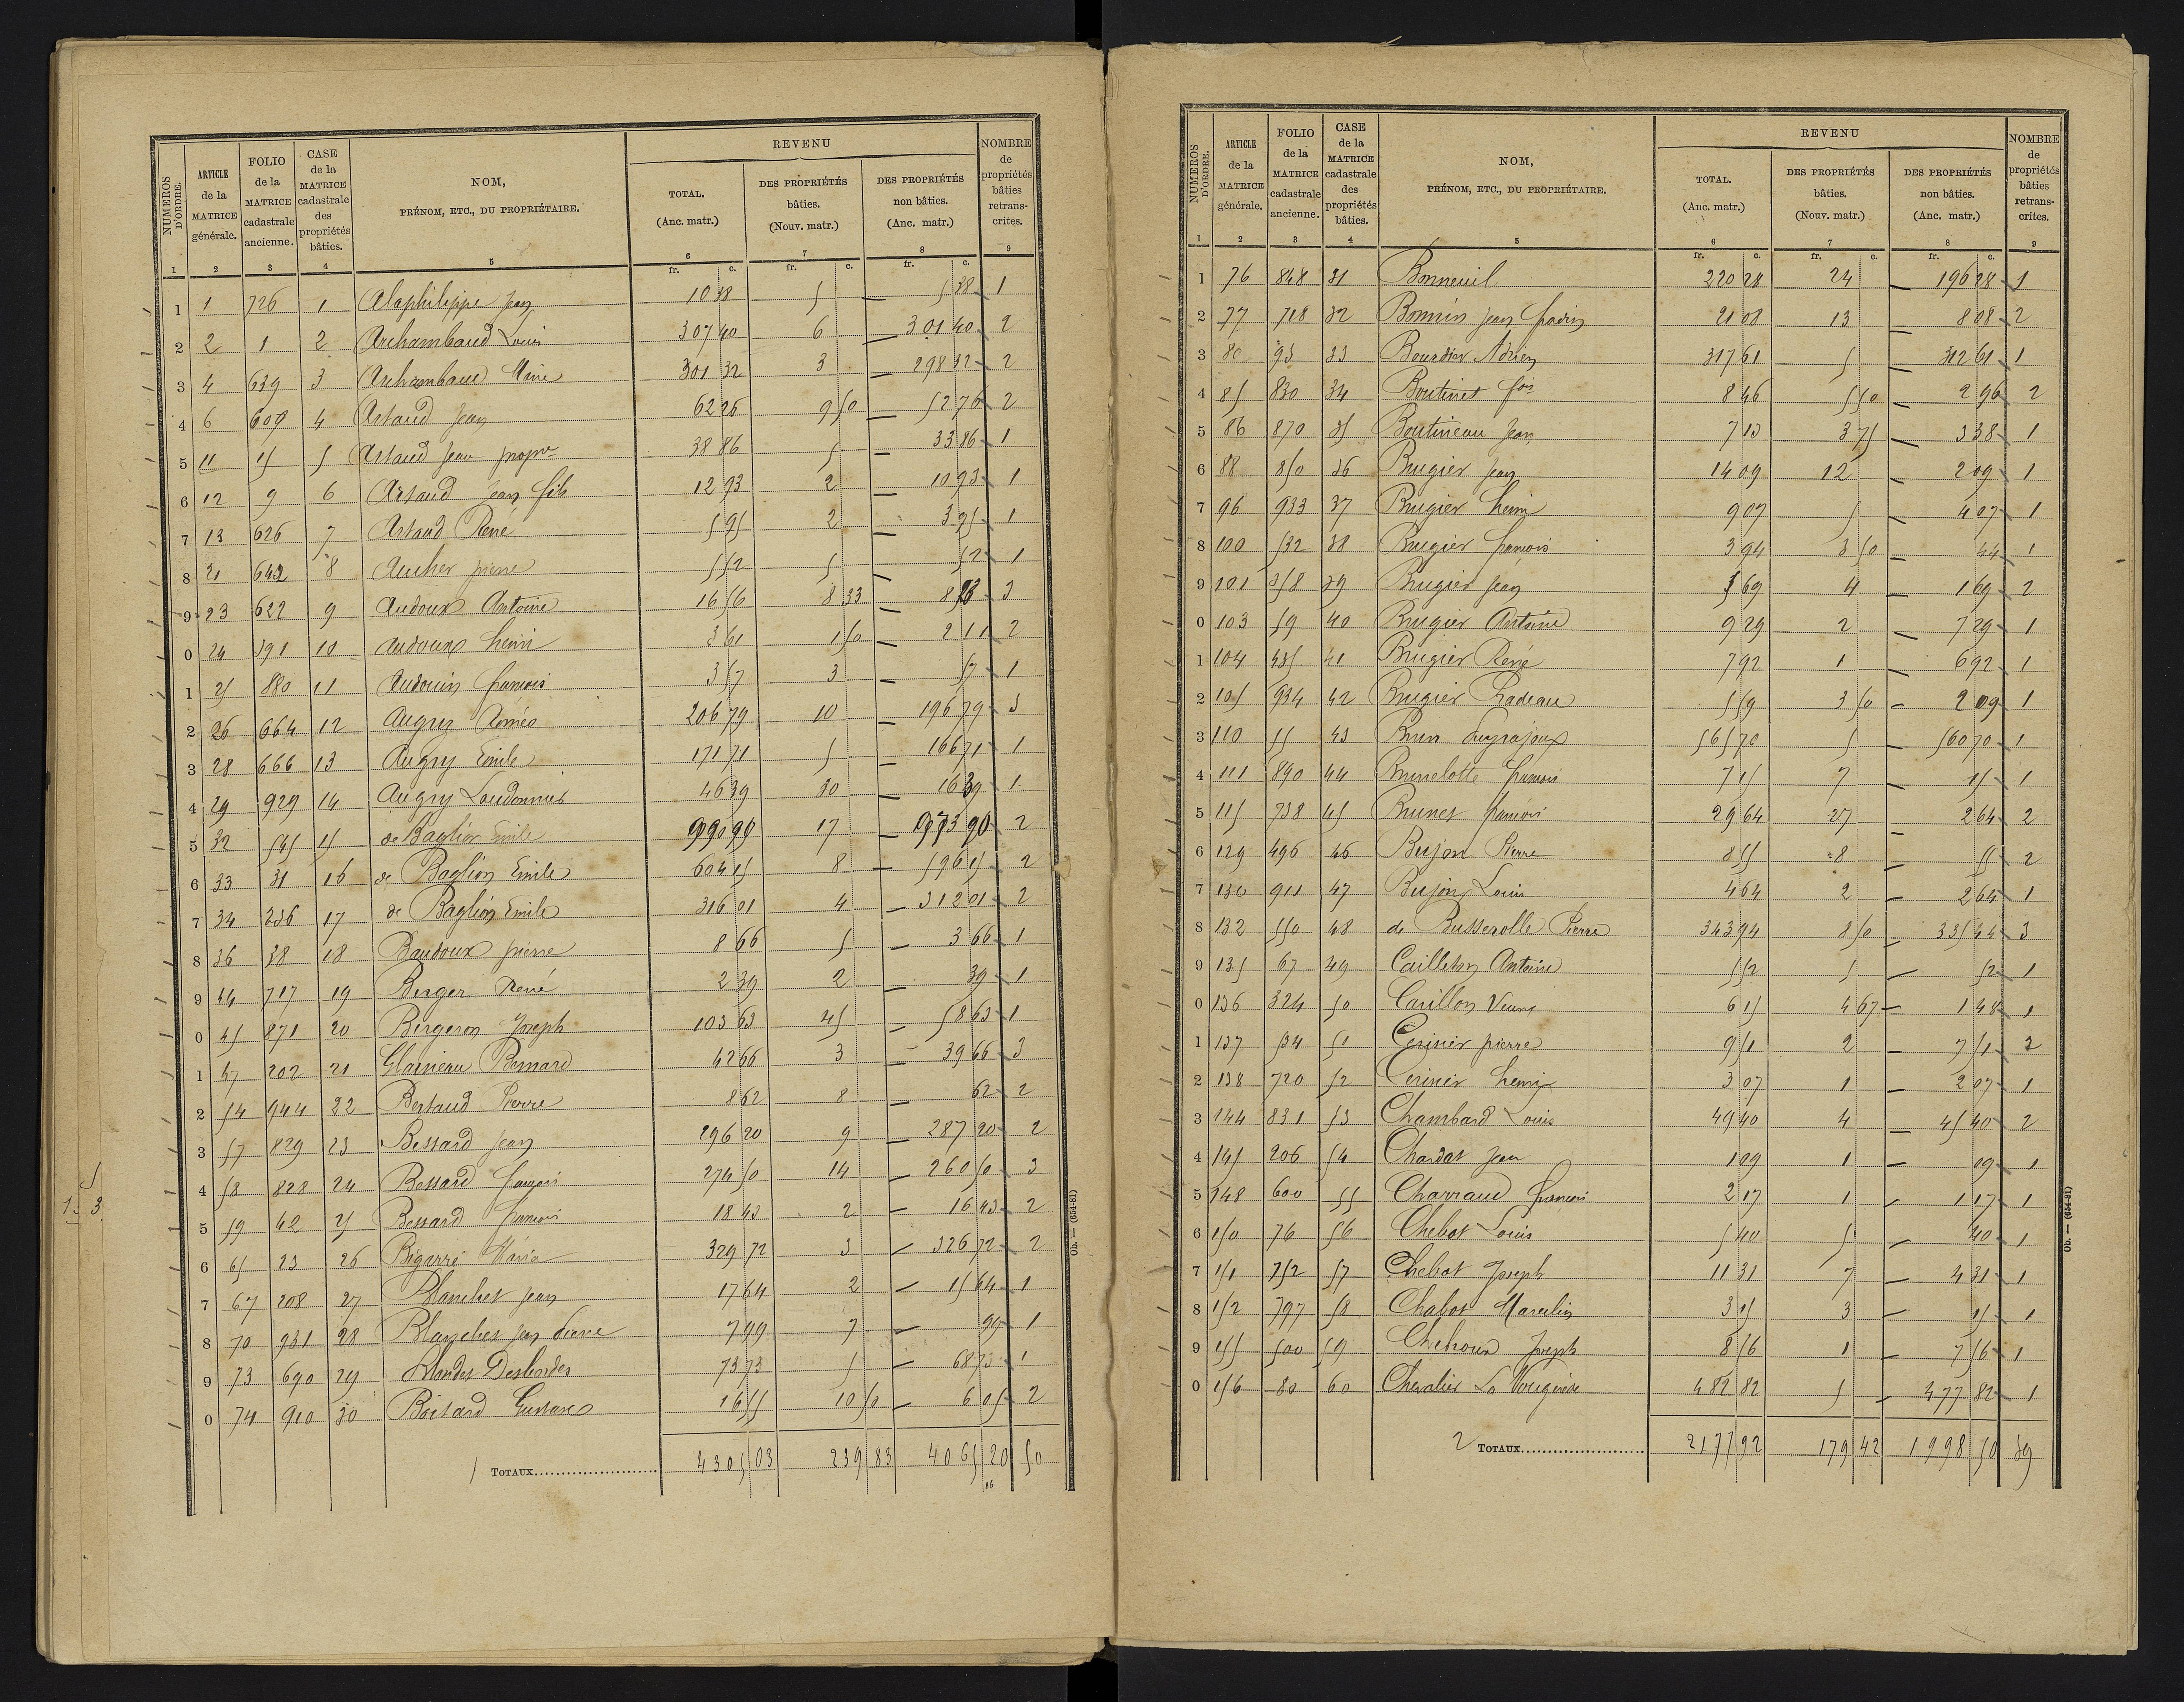 NUMEROS D'ORDRE. | ARTICLE de la MATRICE générale. | FOLIO de la MATRICE cadastrale ancienne. | CASE de la MATRICE cadastrale des propriétés bâties. | NOM, PRÉNOM, ETC., DU PROPRIÉTAIRE. | REVENU | NOMBRE de propriétés bâties retranscrites.
TOTAL. (Anc. matr.) | DES PROPRIÉTÉS bâties. (Nouv. matr.) | DES PROPRIÉTÉS non bâties. (Anc. matr.)
1 2 3 4 5 6 7 8 9
fr. c. fr. c. fr. c.
1 1 726 1 Alaphilippe Jean 10 38 5 — 5 38 1
2 2 1 2 Archambaud Louis 307 40 6 — 301 40 2
3 4 639 3 Archambaud Marie 301 32 3 — 298 32 2
4 6 609 4 Artaud Jean 62 26 9 50 — 52 76 2
5 11 15 5 Artaud Jean propre 38 86 5 — 33 86 1
6 12 9 6 Artaud Jean fils 12 93 2 — 10 93 1
7 13 626 7 Artaud René 5 95 2 — 3 95 1
8 21 642 8 Aucher pierre 5 52 5 — 52 1
9 23 622 9 Audoux Antoine 16 56 8 33 — 8 23 3
0 24 391 10 Audoux henri 3 61 1 50 — 2 11 2
1 25 880 11 Audouin francois 3 57 3 — 57 1
2 26 664 12 Augry Roméo 206 79 10 — 196 79 3
3 28 666 13 Augry Emile 171 71 5 — 166 71 1
4 29 929 14 Augry Laudonnies 46 39 30 — 16 39 1
5 32 545 15 de Baglion Emile 990 90 17 — 973 90 2
6 33 31 16 de Baglion Emile 604 15 8 — 596 15 2
7 34 236 17 de Baglion Emile 316 01 4 — 312 01 2
8 36 38 18 Baudoux pierre 8 66 5 — 3 66 1
9 44 717 19 Berger René 2 39 2 — 39 1
0 45 871 20 Bergeron Joseph 103 63 45 — 58 63 1
1 47 202 21 Glaineau Bernard 42 66 3 — 39 66 3
2 54 944 22 Bertaud Pierre 8 62 8 62 2
3 57 829 23 Bessard Jean 296 20 9 — 287 20 2
4 58 828 24 Bessard francois 274 50 14 — 260 50 3
5 59 42 25 Bessard francois 18 43 2 — 16 43 2
6 65 23 26 Bigarré Maria 329 72 3 — 326 72 2
7 67 208 27 Blanchet jean 17 64 2 — 15 64 1
8 70 931 28 Blanchet jean Pierre 7 99 7 — 99 1
9 73 690 29 Blondet Desbordes 73 73 5 — 68 73 1
0 74 910 30 Boitard Gustave 16 55 10 50 — 6 05 2
1 TOTAUX 4305 03 239 83 4065 20 50
16
Ob. — (654-81)
1 3
NUMEROS D'ORDRE. | ARTICLE de la MATRICE générale. | FOLIO de la MATRICE cadastrale ancienne. | CASE de la MATRICE cadastrale des propriétés bâties. | NOM, PRÉNOM, ETC., DU PROPRIÉTAIRE. | REVENU | NOMBRE de propriétés bâties retranscrites.
TOTAL. (Anc. matr.) | DES PROPRIÉTÉS bâties. (Nouv. matr.) | DES PROPRIÉTÉS non bâties. (Anc. matr.)
1 2 3 4 5 6 7 8 9
fr. c. fr. c. fr. c.
1 76 848 31 Bonneuil 220 28 24 — 196 28 1
2 77 718 32 Bonnin jean 21 08 13 — 8 08 2
3 80 93 33 Bourdier Adrien 317 61 5 312 61 1
4 85 830 34 Boutinet fois 8 46 5 50 — 2 96 2
5 86 870 35 Boutineau Jean 7 13 3 75 — 3 38 1
6 88 850 36 Brugier jean 14 09 12 — 2 09 1
7 96 933 37 Brugier henri 9 07 5 — 4 07 1
8 100 532 38 Brugier francois 3 94 3 50 — 44 1
9 101 358 39 Brugier Jean 5 69 4 — 1 69 2
0 103 59 40 Brugier Antoine 9 29 2 — 7 29 1
1 104 435 41 Brugier René 7 92 1 — 6 92 1
2 105 934 42 Brugier Radeau 5 59 3 50 — 2 09 1
3 110 55 43 Brun 565 70 5 — 560 70 1
4 111 890 44 Brunelotte francois 7 15 7 — 15 1
5 115 738 45 Brunet francois 29 64 27 — 2 64 2
6 129 496 46 Bujon Pierre 8 55 8 — 55 2
7 130 911 47 Bujon Louis 4 64 2 — 2 64 1
8 132 550 48 de Busserolle Pierre 343 94 8 50 — 335 44 3
9 135 67 49 Cailleton Antoine 5 52 5 — 52 1
0 136 324 50 Carillon Veuve 6 15 4 67 — 1 48 1
1 137 534 51 Cerinir pierre 9 51 2 — 7 51 2
2 138 720 52 Cerinir henri 3 07 1 — 2 07 1
3 144 831 53 Chambard Louis 49 40 4 — 45 40 2
4 145 206 54 Chardat Jean 1 09 1 — 09 1
5 148 600 55 Charraud francois 2 17 1 — 1 17 1
6 150 76 56 Chebot Louis 5 40 5 — 40 1
7 151 752 57 Chebot Joseph 11 31 7 — 4 31 1
8 152 797 58 Chabot Marcelin 3 15 3 — 15 1
9 155 500 59 Chehoux Joseph 8 56 1 — 7 56 1
0 156 80 60 Chevalier La 482 82 5 — 477 82 1
2 TOTAUX 2177 92 179 42 1998 50 39
Ob. — (654-81)